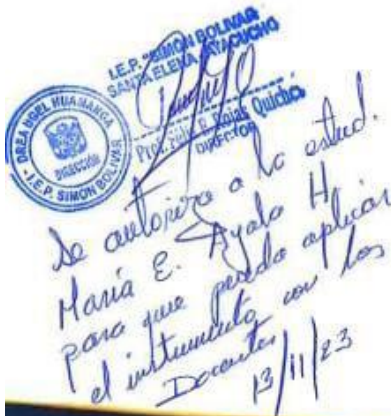 I.E.P. "SIMON BOLIVAR"
SANTA ELENA AYACUCHO
Prof. R. Rojas Quichca
DIRECTOR
DREA UGEL HUAMANGA
DIRECCIÓN
I.E.P. SIMON BOLIVAR
Se autoriza a la estud.
Maria E. Ayala H.
para que pueda aplicar
el instrumento con los
Docentes
13/11/23